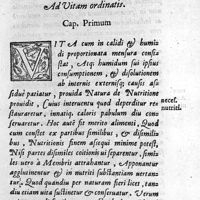 Ad Vitam ordinatis.
Cap. Primum
VITA cum in calidi & humi
di proportionata mensura consi
stat, Atq; humidum sui ipsius
consumptionem, & dissolutionem
ab internis externisq; causis as
sidue patiatur, prouida Natura de Nutritione
prouidit, Cuius interuentu quod deperditur re
stauraretur, innatiq; caloris pabulum diu con
seruaretur. Hoc aut fit merito alimenti, Quod
cum constet ex partibus similibus, & dissimili
bus, Nutritionis finem assequi minime potest,
Nisi partes dissimiles ocitionum separentur, simi
les vero à Membris attrahantur, Apponantur
agglutinentur & in nutriti substantiam uertan
tur, Quod quandiu per naturam fieri licet, tan
diu etiam uita sustinetur & conseruatur. Verum
necef.
nutriti.